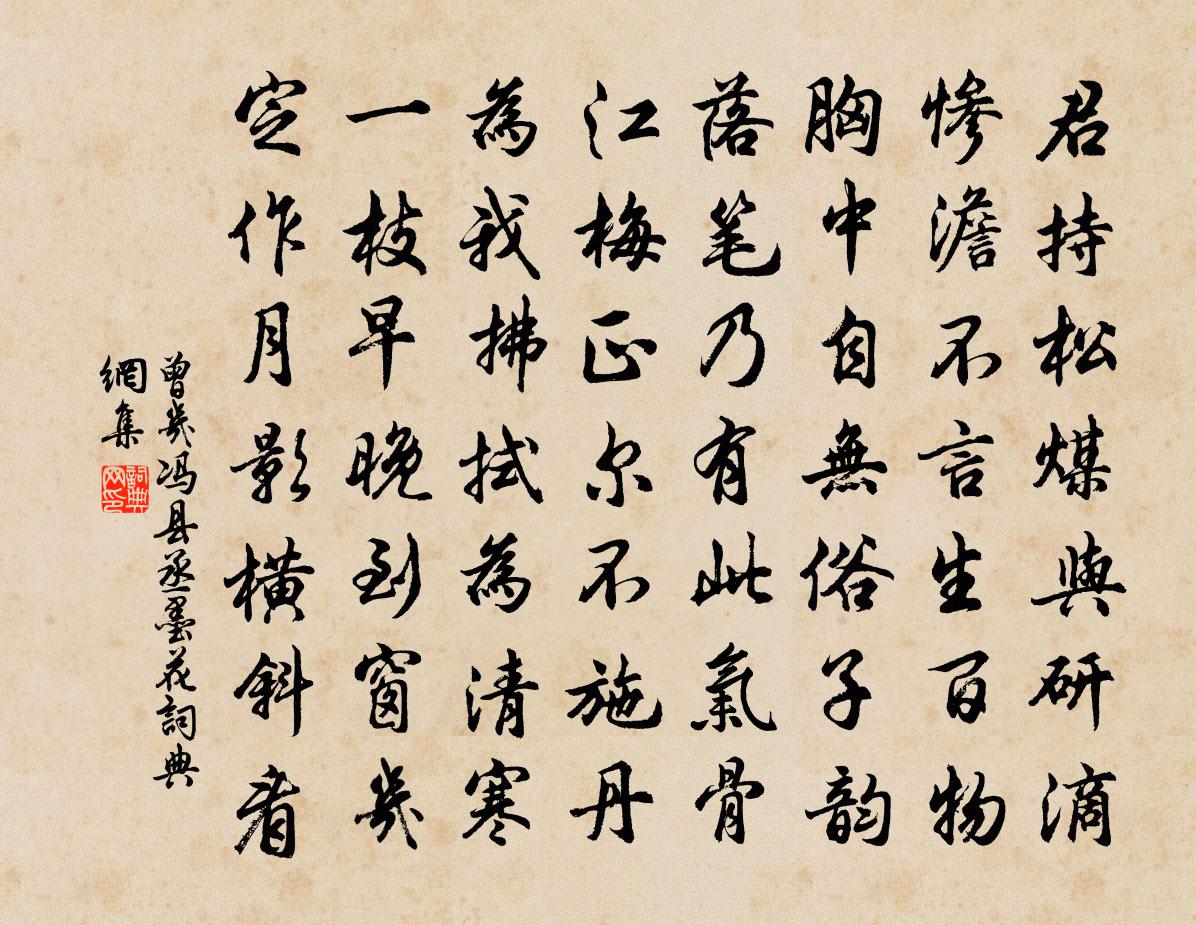 君持松煤與研滴
慘澹不言生百物
胸中自無俗子韵
落笔乃有此氣骨
江梅正尔不施丹
為我拂拭為清寒
一枝早晚到窗几
定作月影橫斜看
曾幾冯县丞墨花詞典
網集
詞典
网印